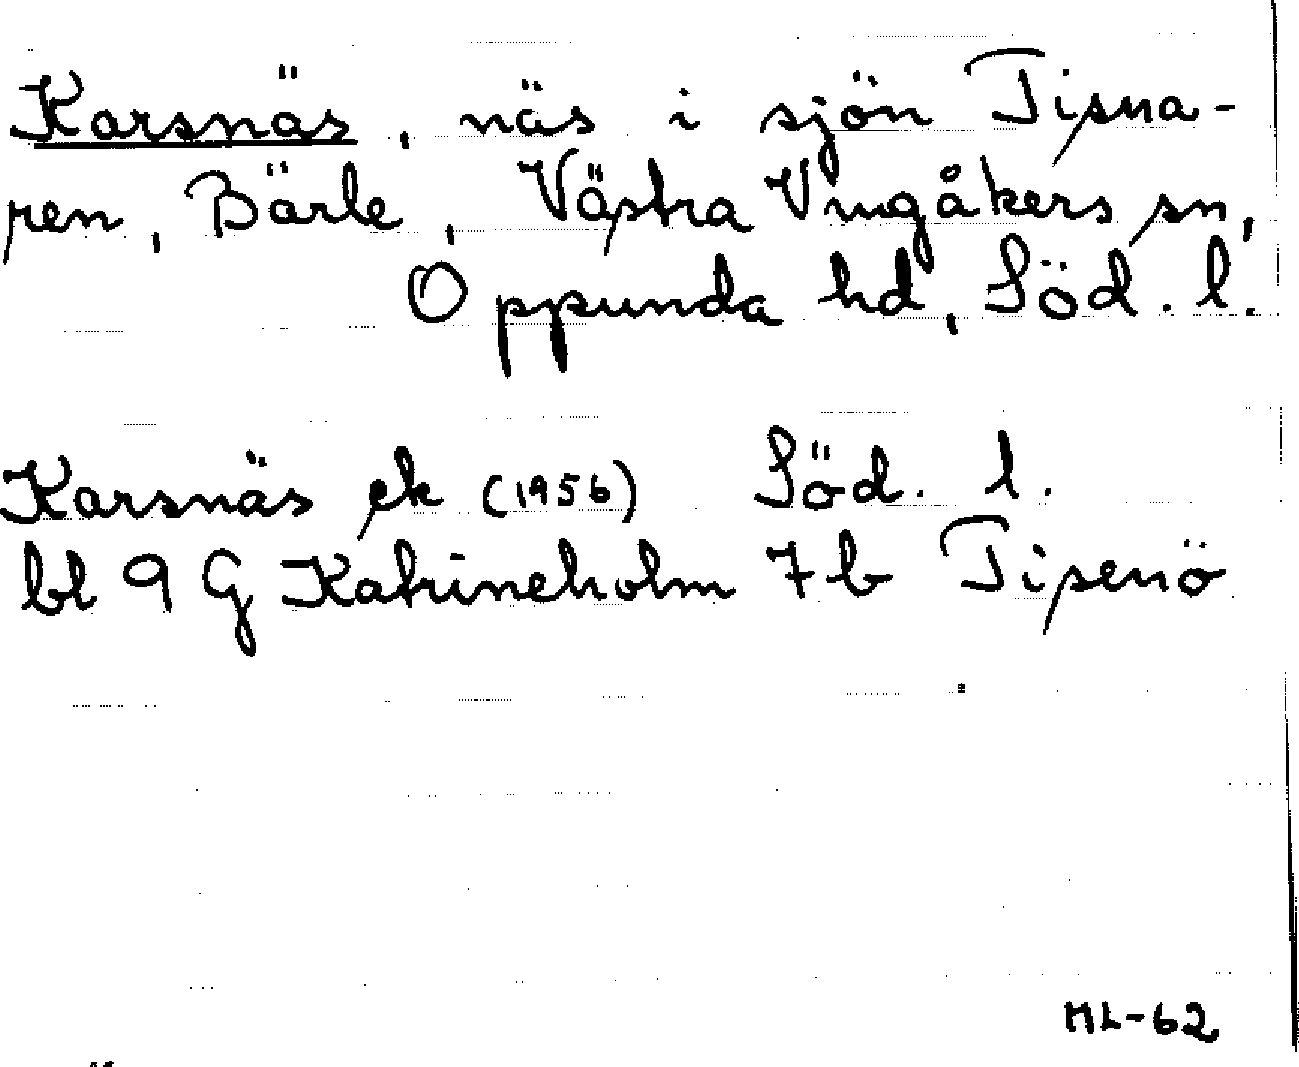 Karsnäs, näs i sjön Tisna-
ren, Bärle, Västra Vingåkers sn,
Oppunda hd, Söd. l.
Karsnäs ek (1956) Söd. l.
bl 9 G Katrineholm 7 b Tisenö
ML-62